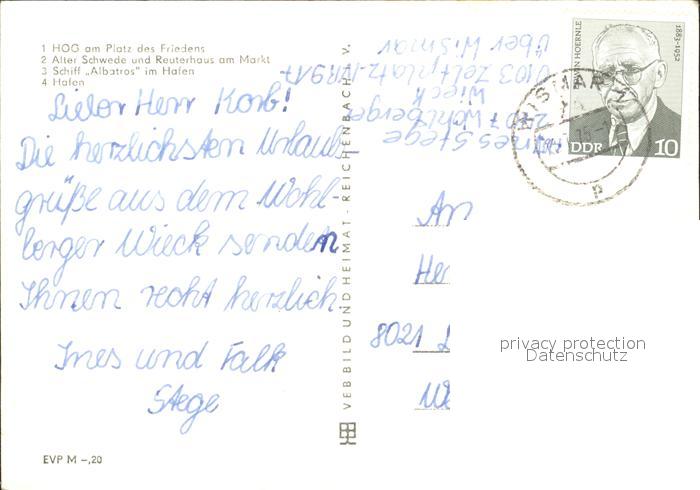 1 HOG am Platz des Friedens
2 Alter Schwede und Reuterhaus am Markt
3 Schiff „Albatros" im Hafen
4 Hafen
Lieber Herr Korb!
Die herzlichsten Urlaubs-
grüße aus dem Wohl-
berger Wieck senden
Ihnen recht herzlich
Ines und Falk
Stege
EVP M –,20
VEB BILD UND HEIMAT · REICHENBACH i. V.
Ines Stege
2407 Wohlberger
Wieck
0103 Zeltplatz-NR 917
über Wismar
EDWIN HOERNLE
1883-1952
DDR 10
WISMAR
An
He
8021
privacy protection
Datenschutz